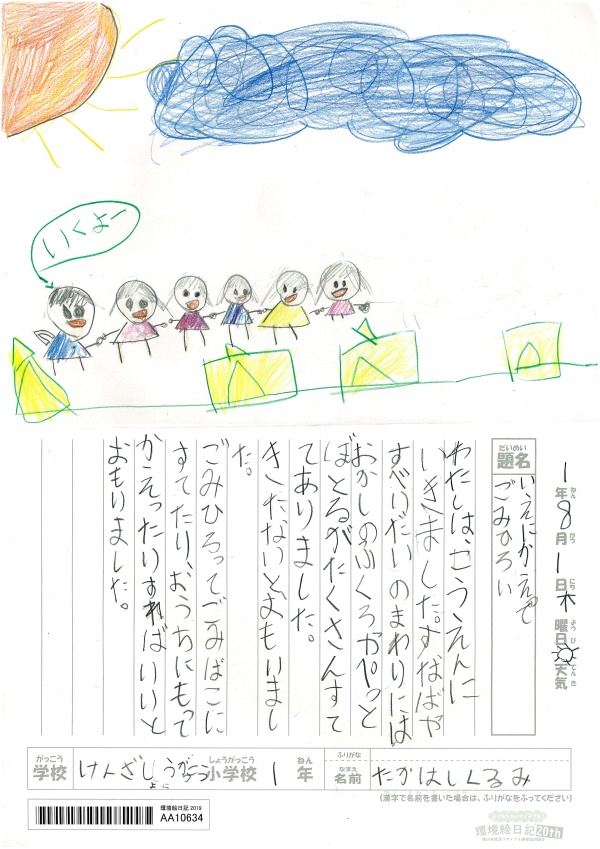 いくよー
1年8月1日木曜日天気
ねん
がつ
にち
ようび
てんき
だいめい
題名
いえにかえって
ごみひろい
わたしは、こうえんに
いきました。すなばや
すべりだいのまわりには
おかしのふくろやペっと
ぼとるがたくさんすて
てありました。
きたないとおもいまし
た。
ごみひろってごみばこに
すてたり、おうちにもって
かえったりすればいいと
おもりました。
がっこう
学校
しょうがっこう
小学校
1
ねん
年
ふりがな
なまえ
名前
たかはしくるみ
(漢字で名前を書いた場合は、ふりがなをふってください)
環境絵日記2019
AA10634
環境絵日記20th